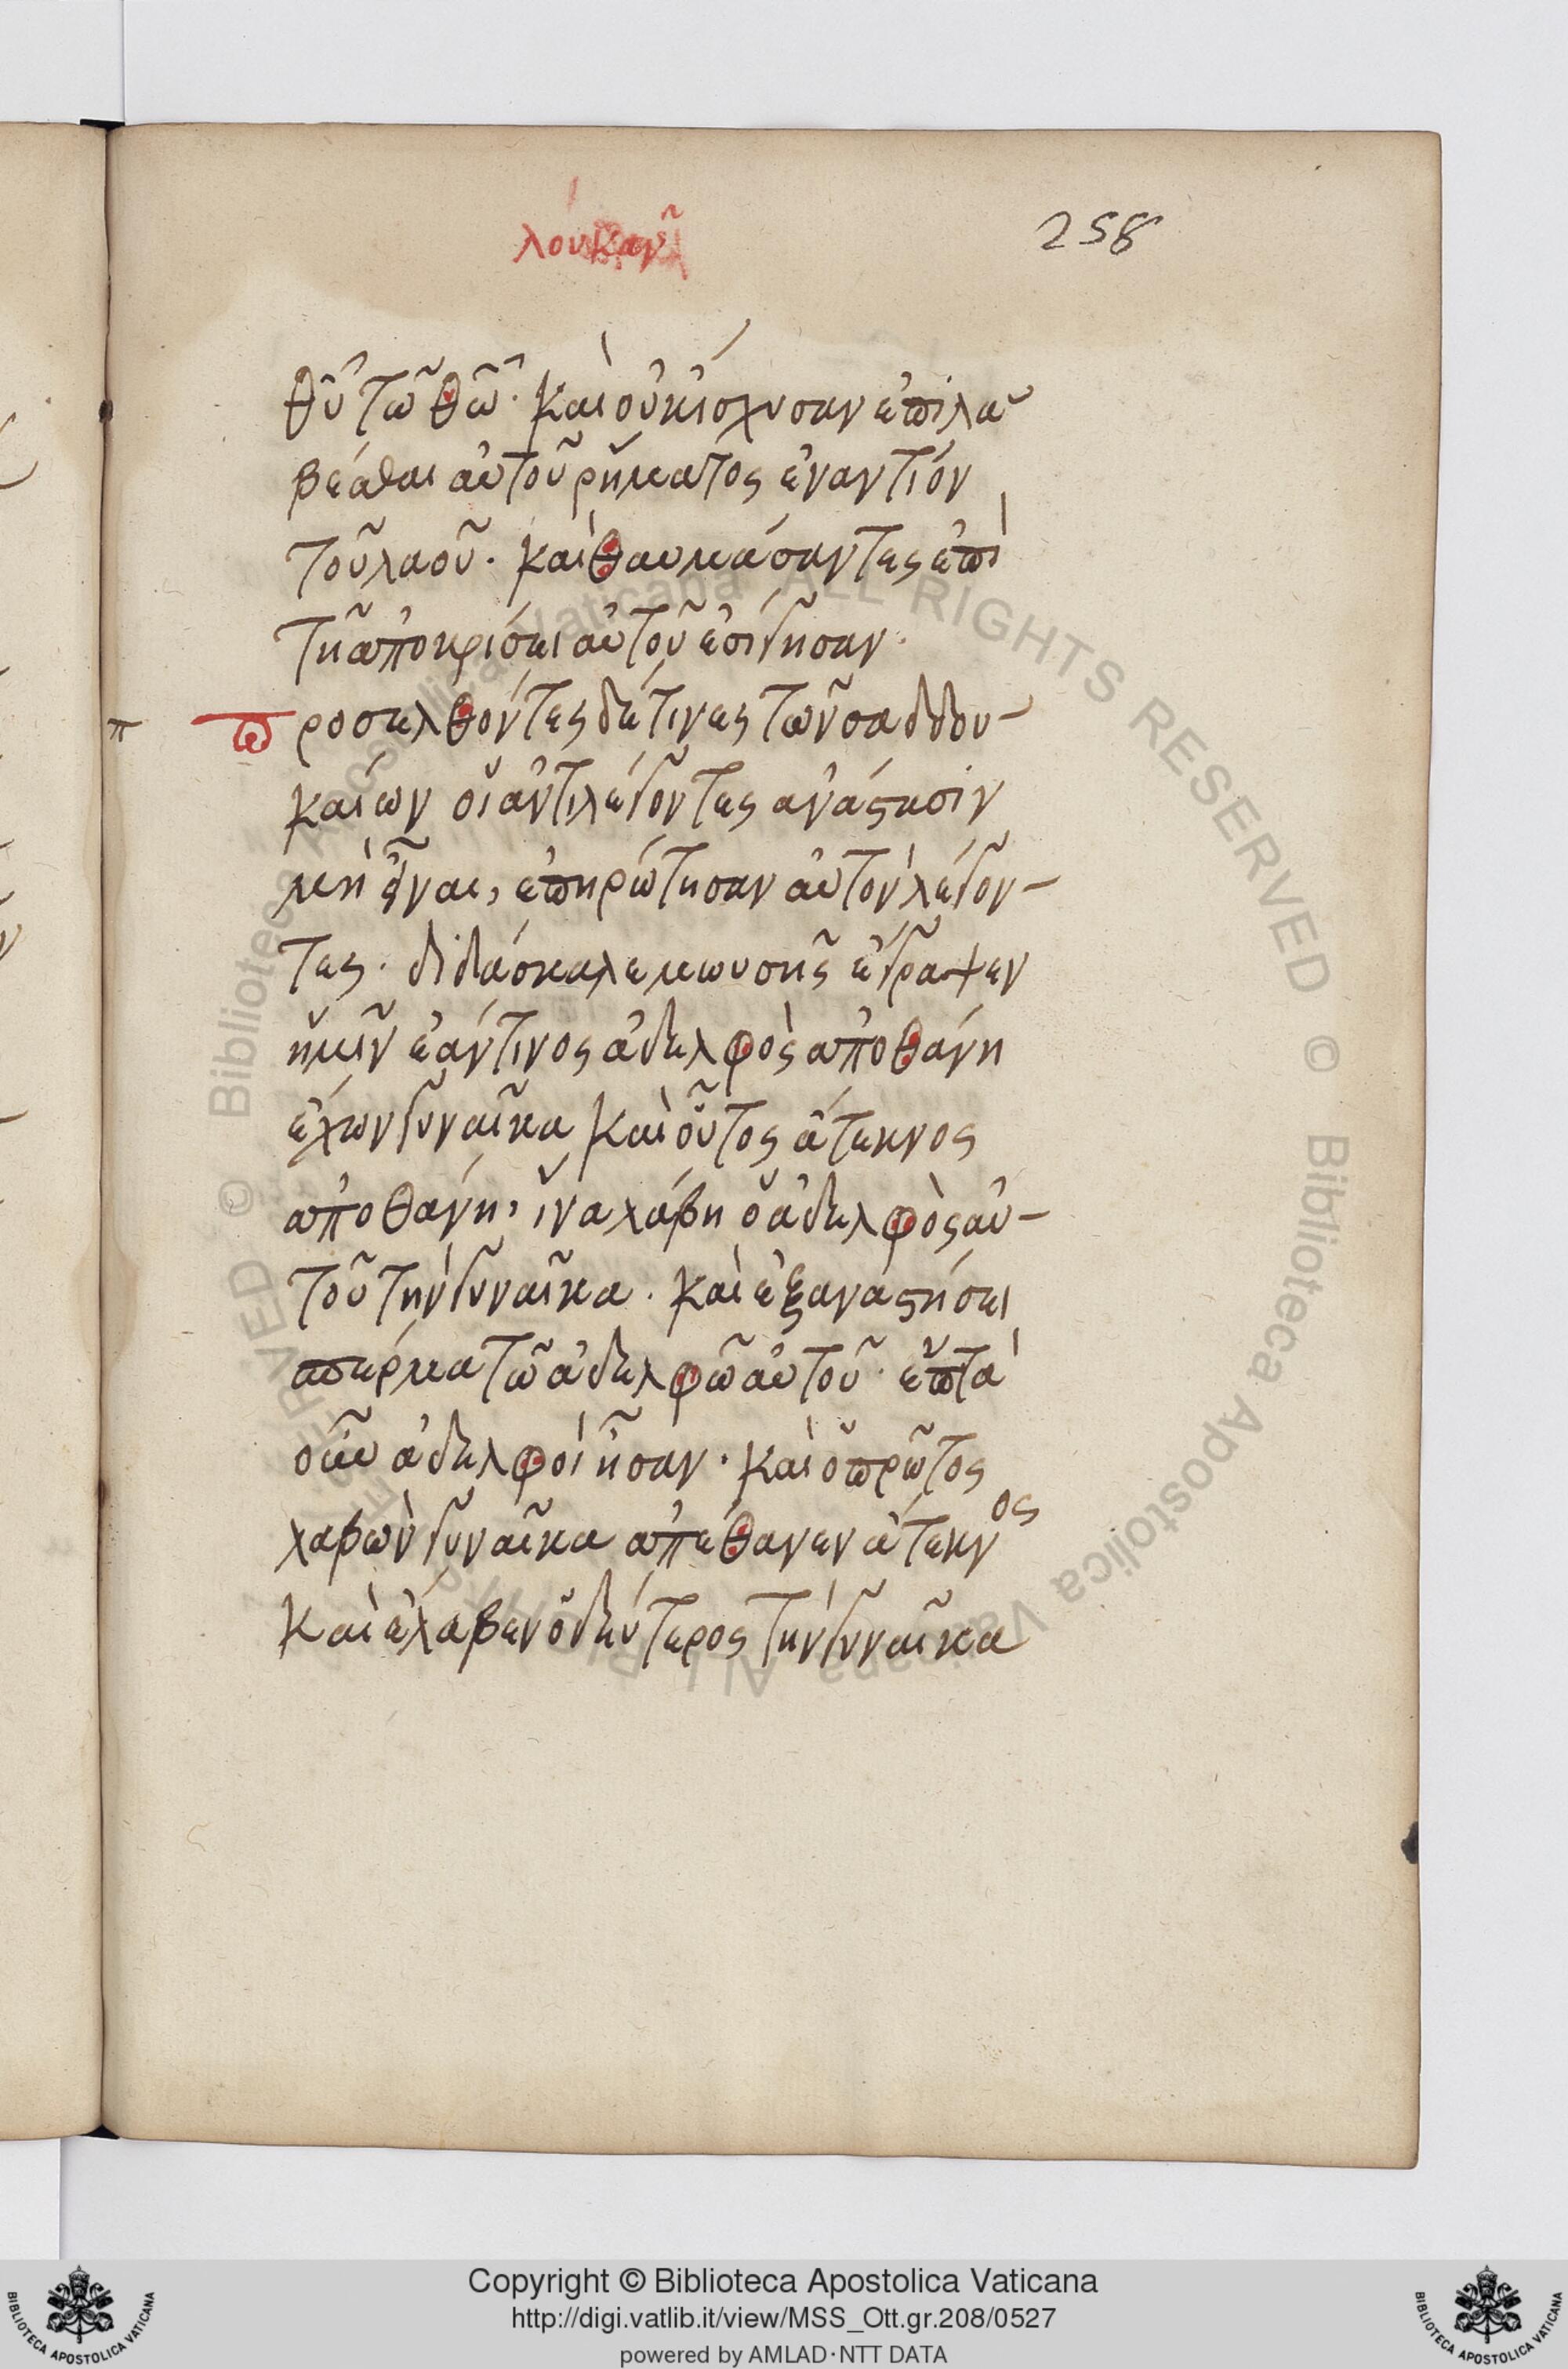 λουκαν
258
θῦ τῶ θῶ· καὶ οὐκ ἴσχυσαν ἐπιλα
βέσθαι αὐτοῦ ῥήματος ἐναντίον
τοῦ λαοῦ. καὶ θαυμάσαντες ἐπὶ
τῆ ἀποκρίσει αὐτοῦ ἐσίγησαν·
π
προσελθόντες δέ τινες τῶν σαδδου-
καίων οἱ ἀντιλέγοντες ἀνάστασιν
μὴ εἶναι, ἐπηρώτησαν αὐτὸν λέγον-
τες. διδάσκαλε μωυσῆς ἔγραψεν
ἡμῖν ἐάν τινος ἀδελφὸς ἀποθάνη
ἔχων γυναῖκα καὶ οὗτος ἄτεκνος
ἀποθάνη, ἵνα λάβη ὁ ἀδελφὸς αὐ-
τοῦ τὴν γυναῖκα. καὶ ἐξαναστήσει
σπέρμα τῶ ἀδελφῶ αὐτοῦ· ἑπτὰ
οὖν ἀδελφοὶ ἦσαν. καὶ ὁ πρῶτος
λαβὼν γυναῖκα ἀπέθανεν ἄτεκνος
καὶ ἔλαβεν ὁ δεύτερος τὴν γυναῖκα
Copyright © Biblioteca Apostolica Vaticana
http://digi.vatlib.it/view/MSS_Ott.gr.208/0527
powered by AMLAD·NTT DATA
BIBLIOTECA APOSTOLICA VATICANA
BIBLIOTECA APOSTOLICA VATICANA